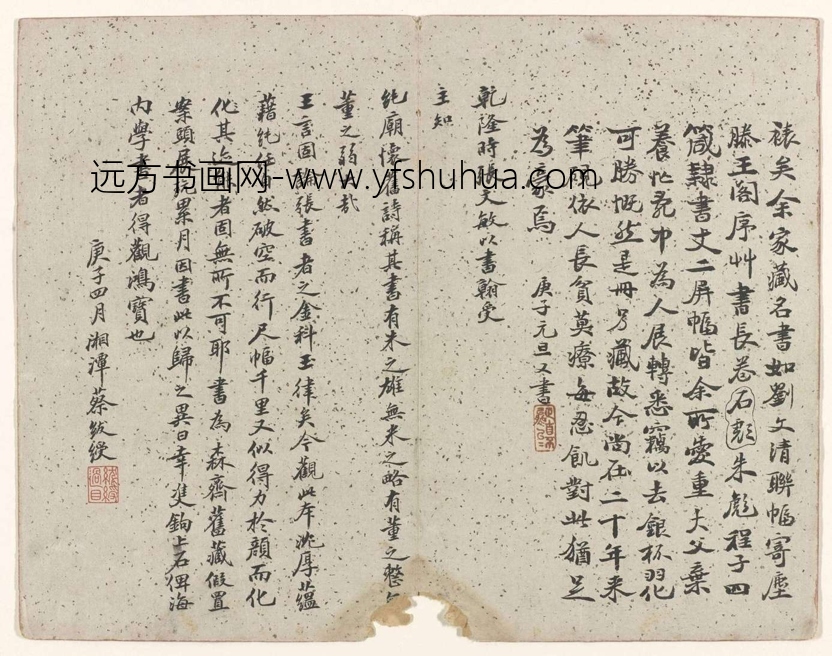 裱矣余家藏名書如劉文清聯幅寄塵
滕王閣序艸書長卷石彪朱彪程子四
箴隸書丈二屏幅皆余所愛重大父棄
養忙亂中為人展轉悉竊以去銀杯羽化
可勝慨然是冊另藏故今尚在二十年来
筆墨依人長貧莫療每忍飢對此猶足
為豪焉
庚子元旦又書
乾隆時張文敏以書翰受
主知
純廟懷舊詩稱其書有米之雄無米之略有董之整
董之弱哉
王言固論張書者之金科玉律矣今觀此本沈厚蘊
藉純任自然破空而行尺幅千里又似得力於顏而化
化其治者固無所不可耶書為森齋舊藏假置
案頭展玩累月因書此以歸之異日幸雙鉤上石俾海
內學書者得觀鴻寶也
庚子四月湘潭蔡紱綬
远方书画网-www.yfshuhua.com